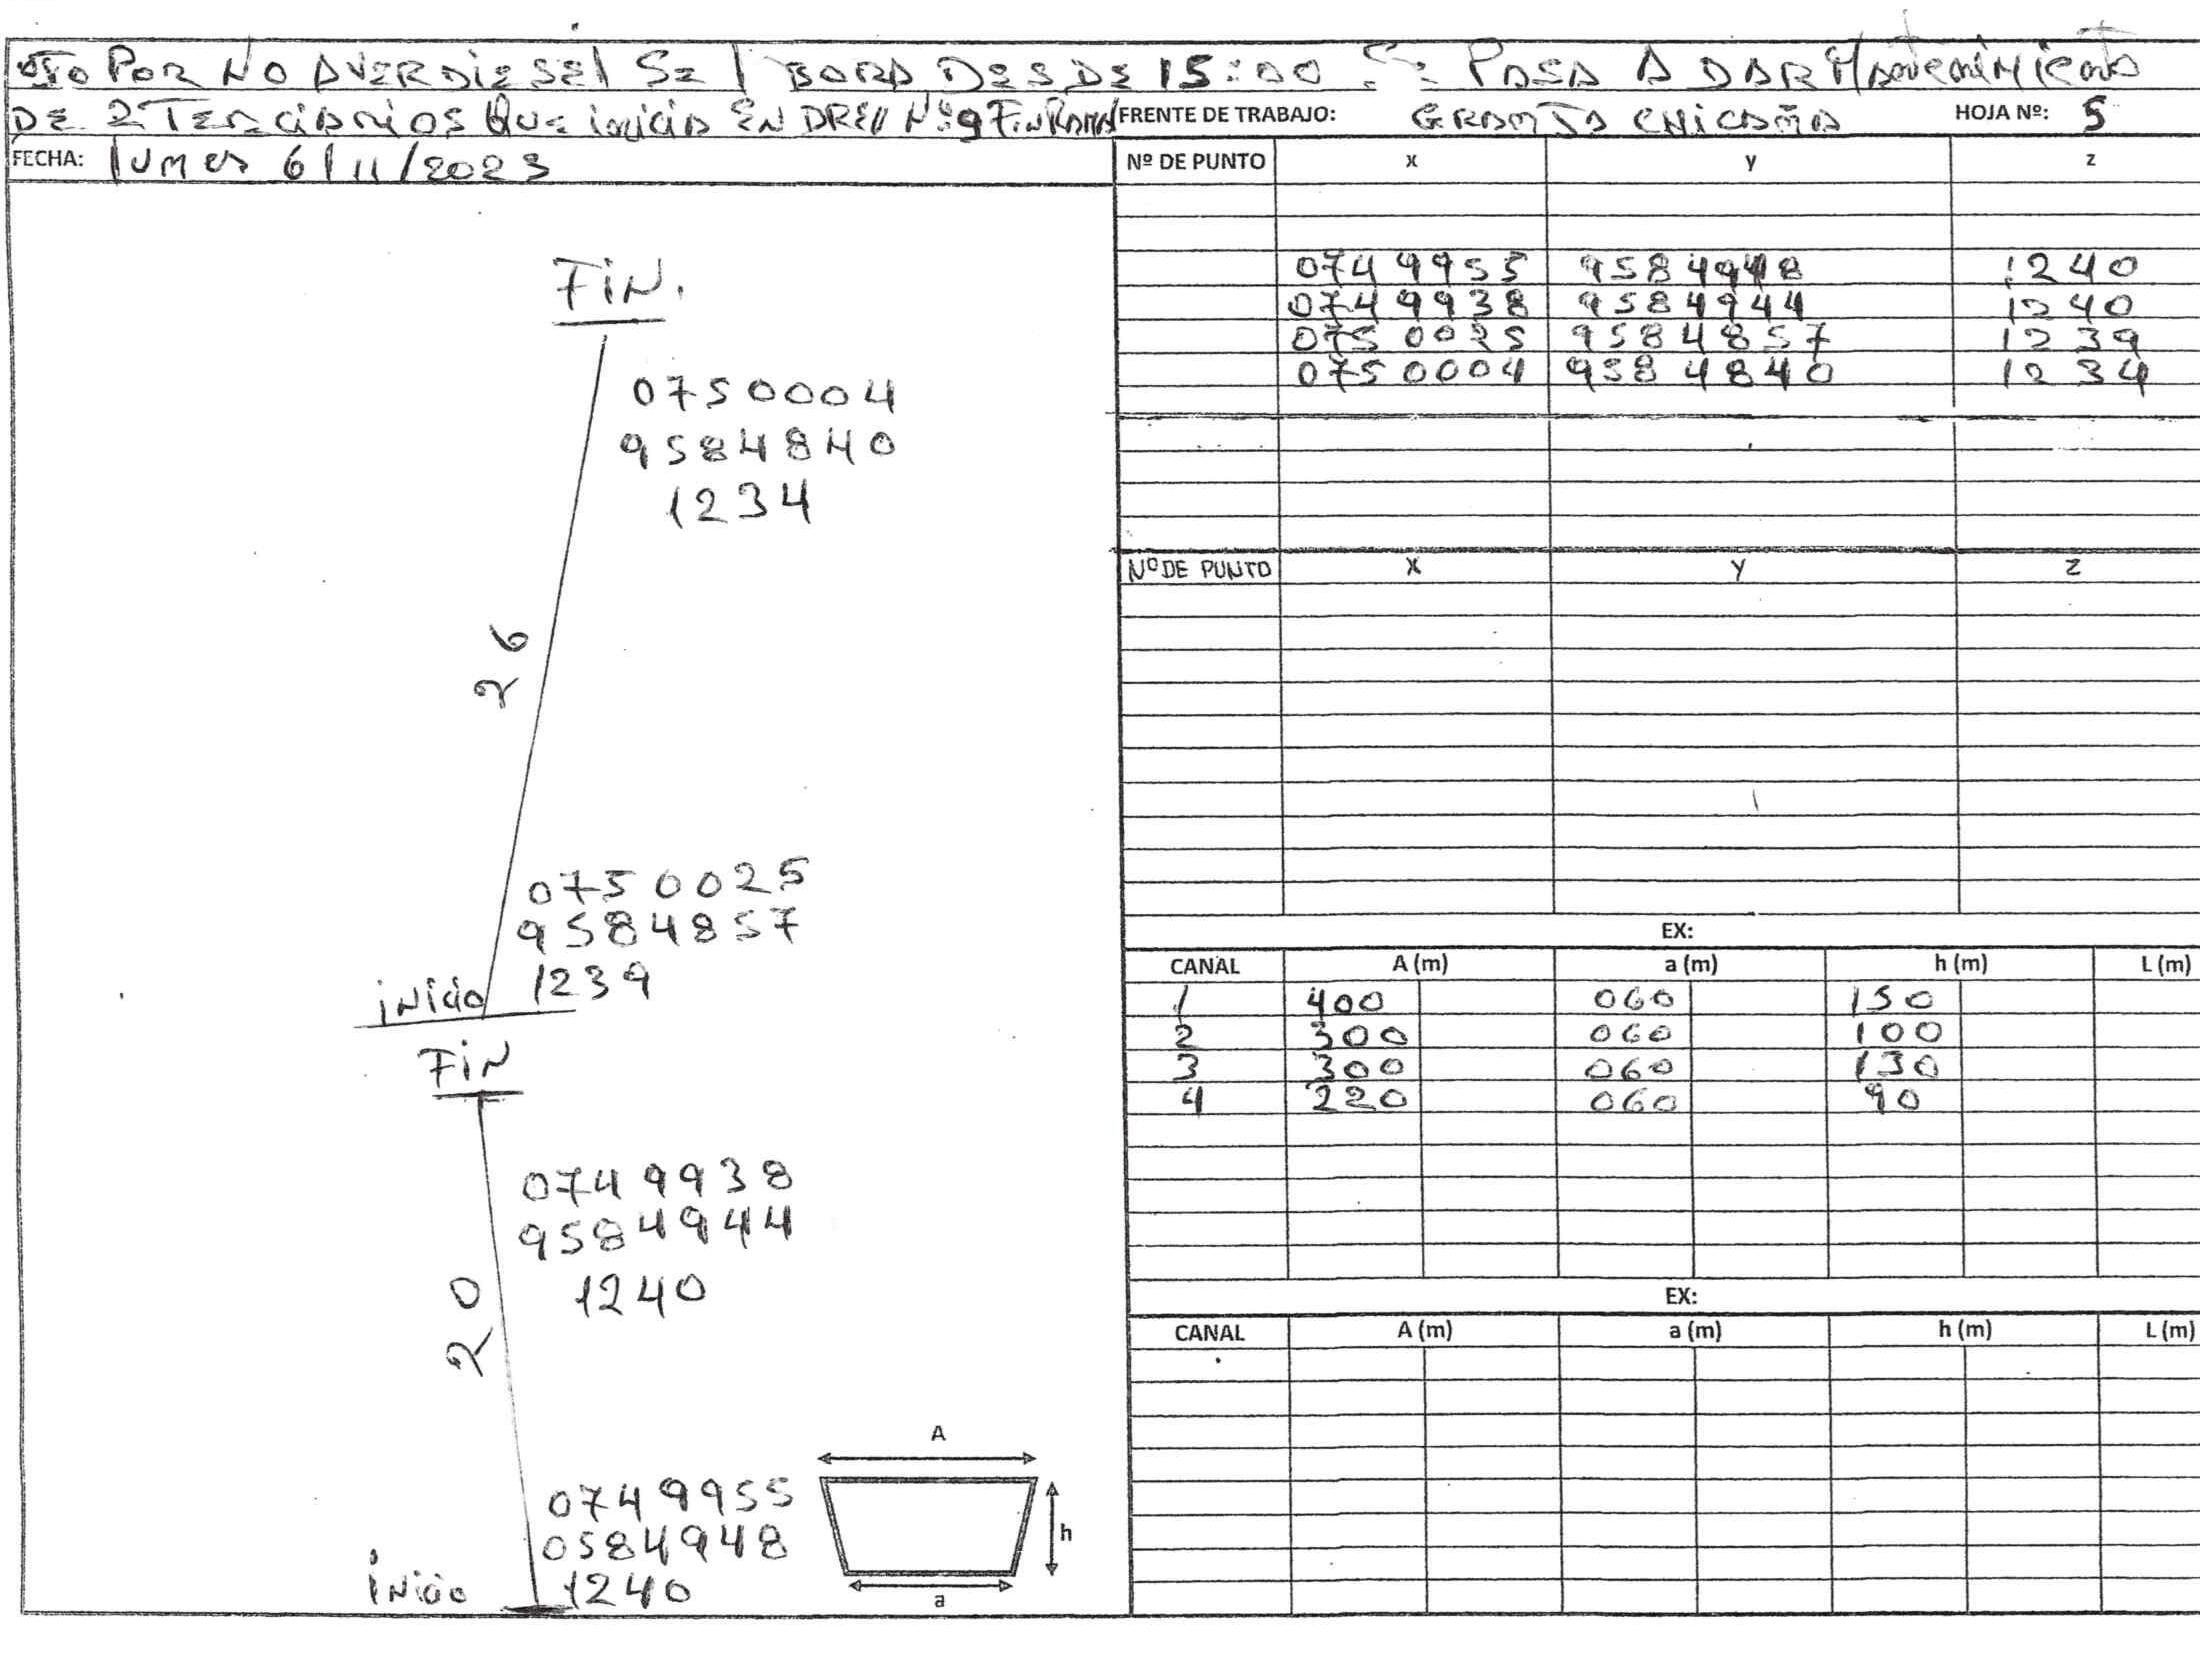 POR NO AVER DIESEl SE lABORA DESDE 15:00 SE PASA A DAR MANTENIMIENTO
DE 2 TERCIARIOS QUE INICIA EN DREN Nº 9 FIN RAMA
FRENTE DE TRABAJO: GRANJA CHICAÑA HOJA Nº: 5
FECHA: lUNES 6/11/2023
Nº DE PUNTO x y z
0749955 9584948 1240
0749938 9584944 1240
0750025 9584857 1239
0750004 9584840 1234
Nº DE PUNTO X Y Z
FiN.
0750004
9584840
1234
26
0750025
9584857
1239
iNicio
FiN
0749938
9584944
1240
20
0749955
0584948
1240
iNicio
A
h
a
EX:
CANAL A (m) a (m) h (m) L (m)
1 400 060 150
2 300 060 100
3 300 060 130
4 220 060 90
EX:
CANAL A (m) a (m) h (m) L (m)